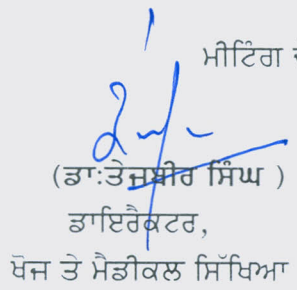 ਮੀਟਿੰਗ
(ਡਾ:ਤੇਜਬੀਰ ਸਿੰਘ )
ਡਾਇਰੈਕਟਰ,
ਖੋਜ ਤੇ ਮੈਡੀਕਲ ਸਿੱਖਿਆ